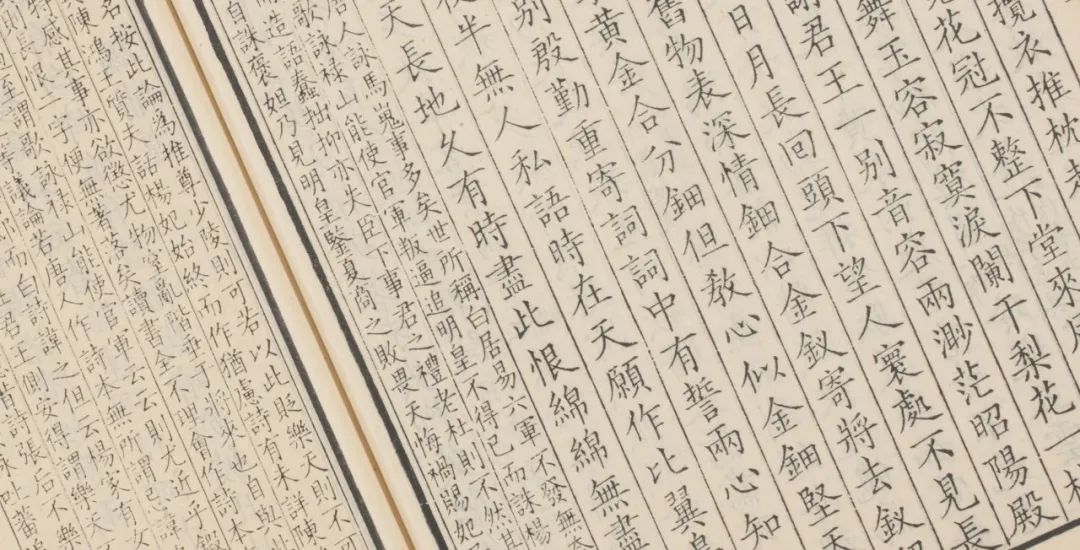 攬衣推枕
花冠不整下堂來
舞玉容寂寞淚闌干梨花一
君王一別音容兩渺茫昭陽殿
日月長回頭下望人寰處不見長
舊物表深情鈿合金釵寄將去釵
黃金合分鈿但教心似金鈿堅天
別殷勤重寄詞詞中有誓兩心知
半無人私語時在天願作比翼
天長地久有時盡此恨綿綿無盡
唐人詠馬嵬事多矣世所稱白居易六軍不發無
歌詠祿山能使官軍叛逼追明皇不得已而誅楊
造語蠢拙抑亦失臣下事君之禮老杜則不然其
自誅褒妲乃見明皇鑒夏商之敗畏天悔禍賜妃
按此論為推尊少陵則可若以此貶樂天則不
陳鴻王質夫語楊妃始終而作猶慮詩有未詳陳
感其事亦欲懲尤物窒亂階垂 將來也自與
恨二字便無著落矣讀書全不理會作詩本
謂歌詠祿山能使官軍云云則尤近乎鍛
議論若唐人作詩本無所謂忌諱
而白詩諱之但云楊家有女
君王側安得謂樂天不
時張后不樂